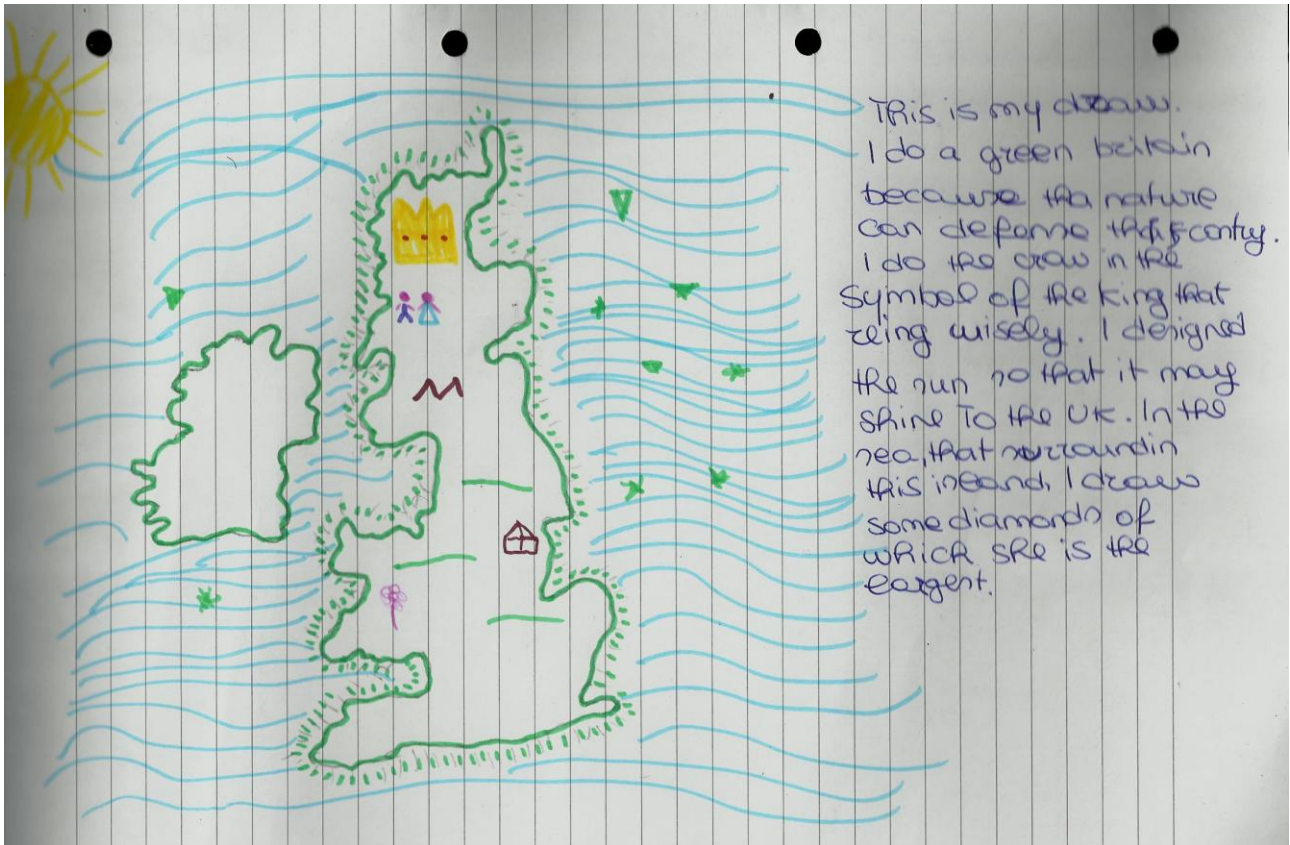 This is my draw.
I do a green britain
because tha nature
can defanse this contry.
I do the crow in the
symbol of the king that
reing wisely. I designed
the sun so that it may
shine To the UK. In the
sea, that surroundin
this iseand, I draw
some diamonds of
which she is the
largest.